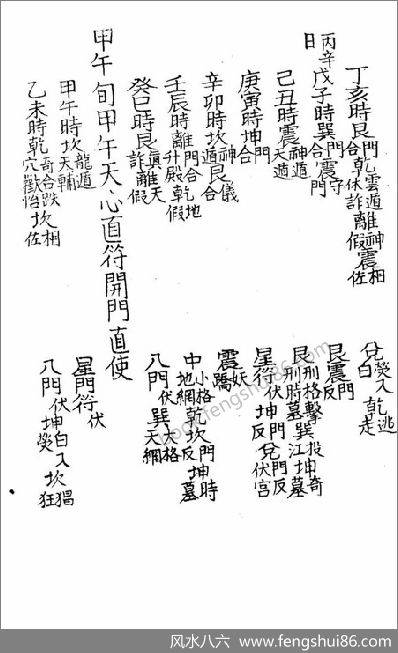 丁亥時艮門合乾雲遁休詐離神假震相佐
兌熒入白乾逃走
丙辛日
戊子時巽門合震守門
艮震門反
己丑時震神遁天遁
艮刑格刑時擊墓巽投江坤奇墓
庚寅時坤門合
星符伏坤門反兌門反伏宮
辛卯時坎神遁艮儀合
震妖矯
壬辰時離門合升殿乾地假
中小格地網乾坎門反坤時墓
癸巳時艮真詐離天假
八門伏巽大格天網
甲午旬甲午天心直符開門直使
甲午時坎龍遁天輔
星門符伏
乙未時乾奇合跌穴歡怡坎相佐
八門伏坤白入熒坎猖狂
风水八六 www.fengshui86.com